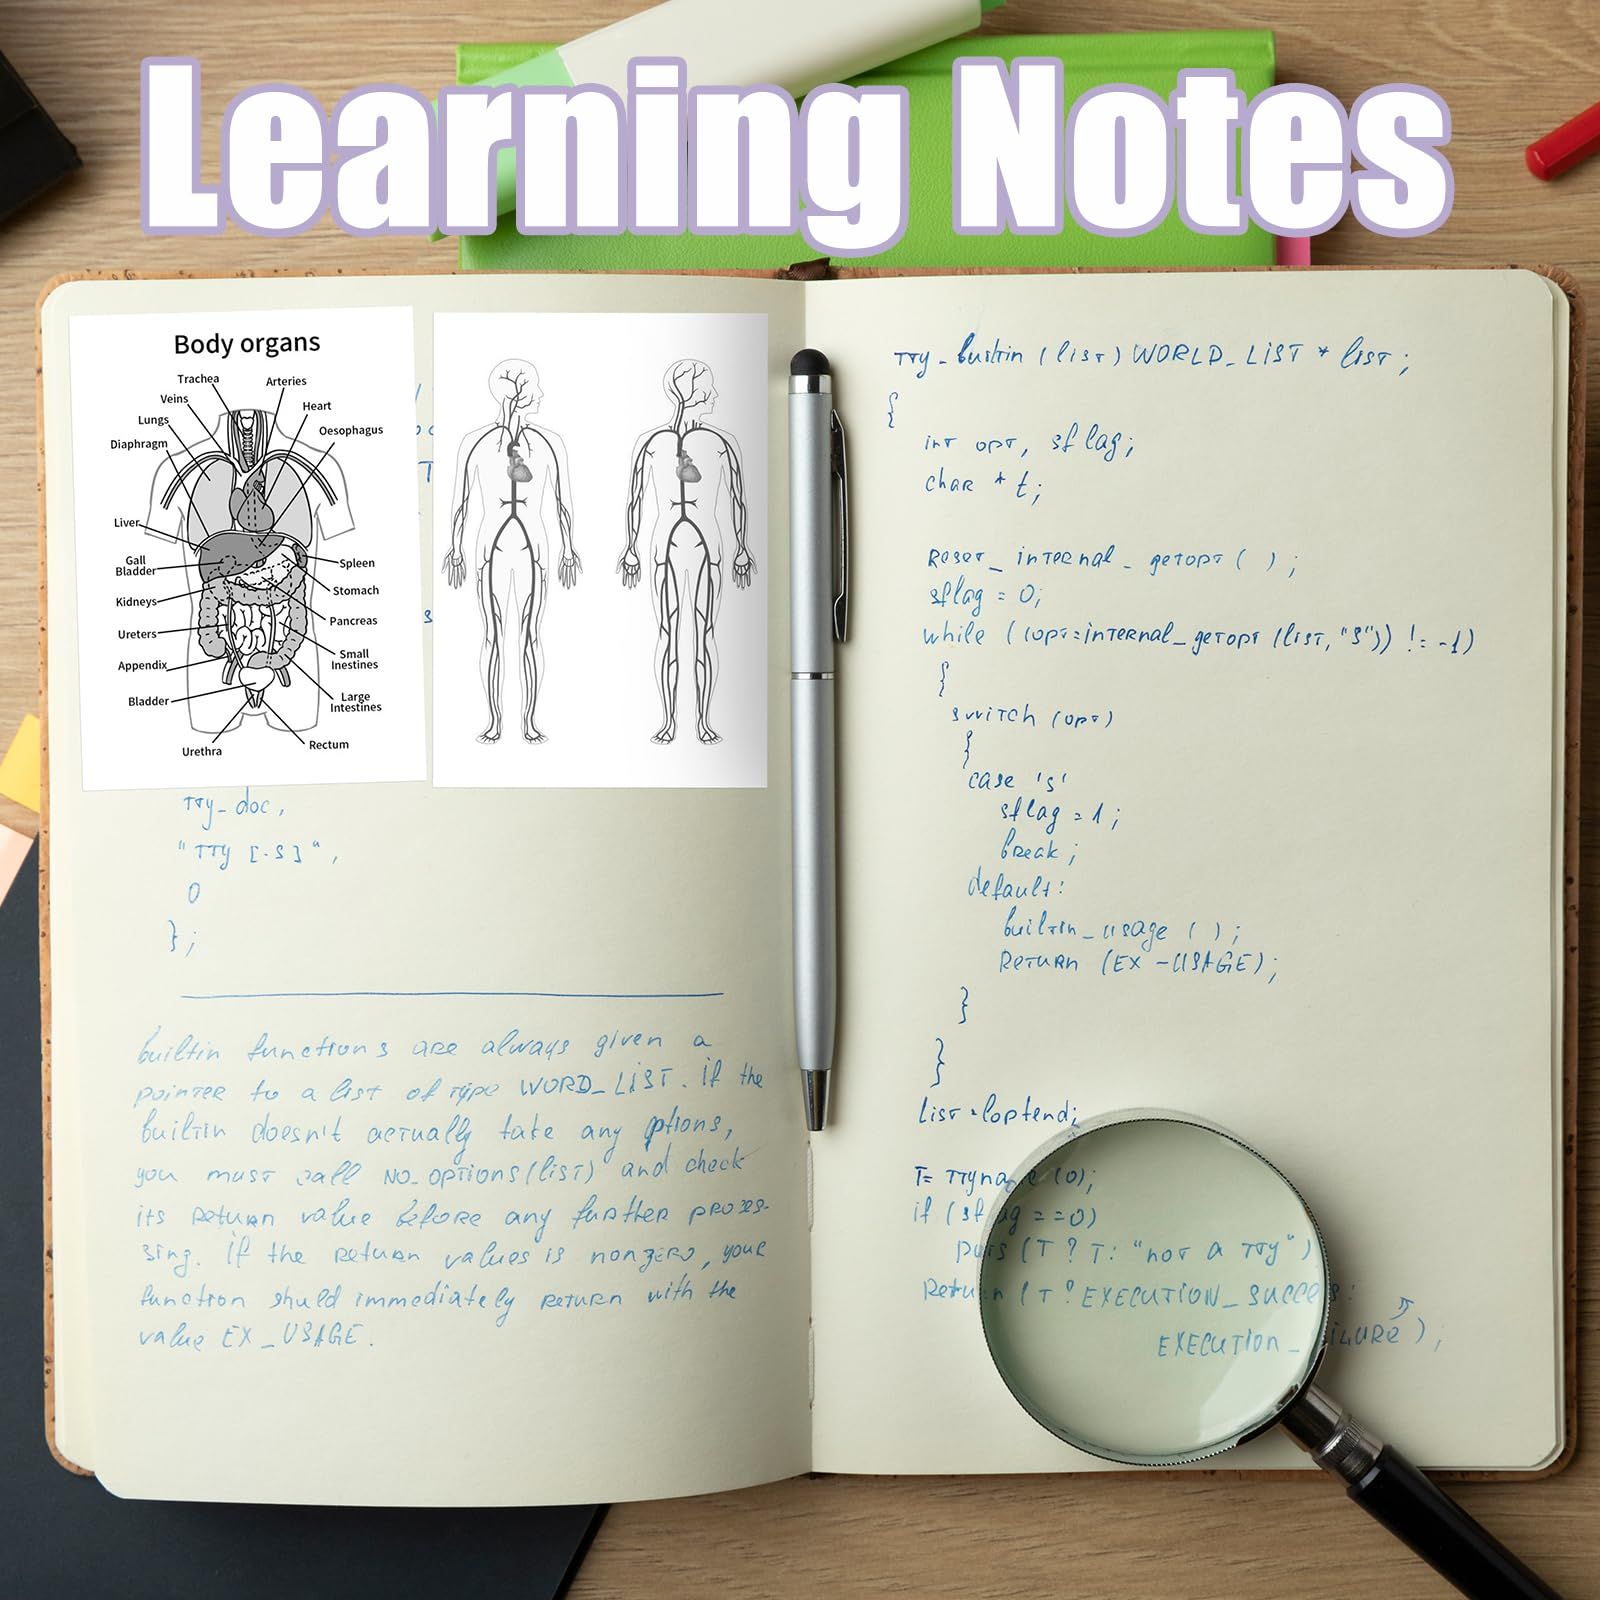 Learning Notes
Body organs
Trachea
Arteries
Veins
Heart
Lungs
Oesophagus
Diaphragm
Liver
Gall
Bladder
Spleen
Stomach
Kidneys
Pancreas
Ureters
Small
Inestines
Appendix
Large
Intestines
Bladder
Urethra
Rectum
TTY_doc,
"TTY [-S]",
0
};
builtin functions are always given a
pointer to a list of type WORD_LIST. If the
builtin doesn't actually take any options,
you must call NO_OPTIONS(list) and check
its return value before any further proces-
sing. If the return values is nonzero, your
function shuld immediately return with the
value EX_USAGE.
TTY_builtin (list) WORLD_LIST * list;
{
int opt, sflag;
char * t;
Reset_internal_getopt ( );
sflag = 0;
while ((opt=internal_getopt (list, "S")) != -1)
{
switch (opt)
{
case 's'
sflag = 1;
break;
default:
builtin_usage ( );
Return (EX-USAGE);
}
}
List = loptend;
T= TTYname (0);
if (sflag ==0)
puts (T ? T: "not a TTY")
Return (T ? EXECUTION_SUCCES:
EXECUTION_FAILURE);